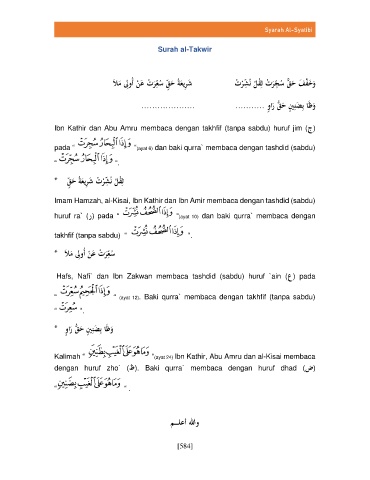 Syarah Al-Syatibi
Surah al-Takwir
وَخَفَّفَ حَقٌّ سُجِّرَتْ ثِقْلُ نُشِّرَتْ شَرِيعَةُ حَقٍّ سُعِّرَتْ عَنْ أُولِي مَلَا
وَظَا بِضَنِينٍ حَقُّ رَاوٍ ............ ...................
Ibn Kathir dan Abu Amru membaca dengan takhfif (tanpa sabdu) huruf jim (ج)
pada “ وَإِذَا ٱلْبِحَارُ سُجِرَتْ ” (ayat 6) dan baki qurra` membaca dengan tashdid (sabdu)
“ وَإِذَا ٱلْبِحَارُ سُجِّرَتْ ”.
* ثِقْلُ نُشِّرَتْ شَرِيعَةُ حَقٍّ
Imam Hamzah, al-Kisai, Ibn Kathir dan Ibn Amir membaca dengan tashdid (sabdu)
huruf ra` (ر) pada “ وَإِذَا ٱلصُّحُفُ نُشِّرَتْ ” (ayat 10) dan baki qurra` membaca dengan
takhfif (tanpa sabdu) “ وَإِذَا ٱلصُّحُفُ نُشِرَتْ ”.
* سُعِّرَتْ عَنْ أُولِي مَلَا
Hafs, Nafi` dan Ibn Zakwan membaca tashdid (sabdu) huruf `ain (ع) pada
“ وَإِذَا ٱلْجَحِيمُ سُعِّرَتْ ” (ayat 12). Baki qurra` membaca dengan takhfif (tanpa sabdu)
“ سُعِرَتْ ”.
* وَظَا بِضَنِينٍ حَقُّ رَاوٍ
Kalimah “ وَمَا هُوَ عَلَى ٱلْغَيْبِ بِظَنِينٍ ” (ayat 24) Ibn Kathir, Abu Amru dan al-Kisai membaca
dengan huruf zho` (ظ). Baki qurra` membaca dengan huruf dhad (ض)
“ وَمَا هُوَ عَلَى ٱلْغَيْبِ بِضَنِينٍ ”.
والله أعلم
[584]